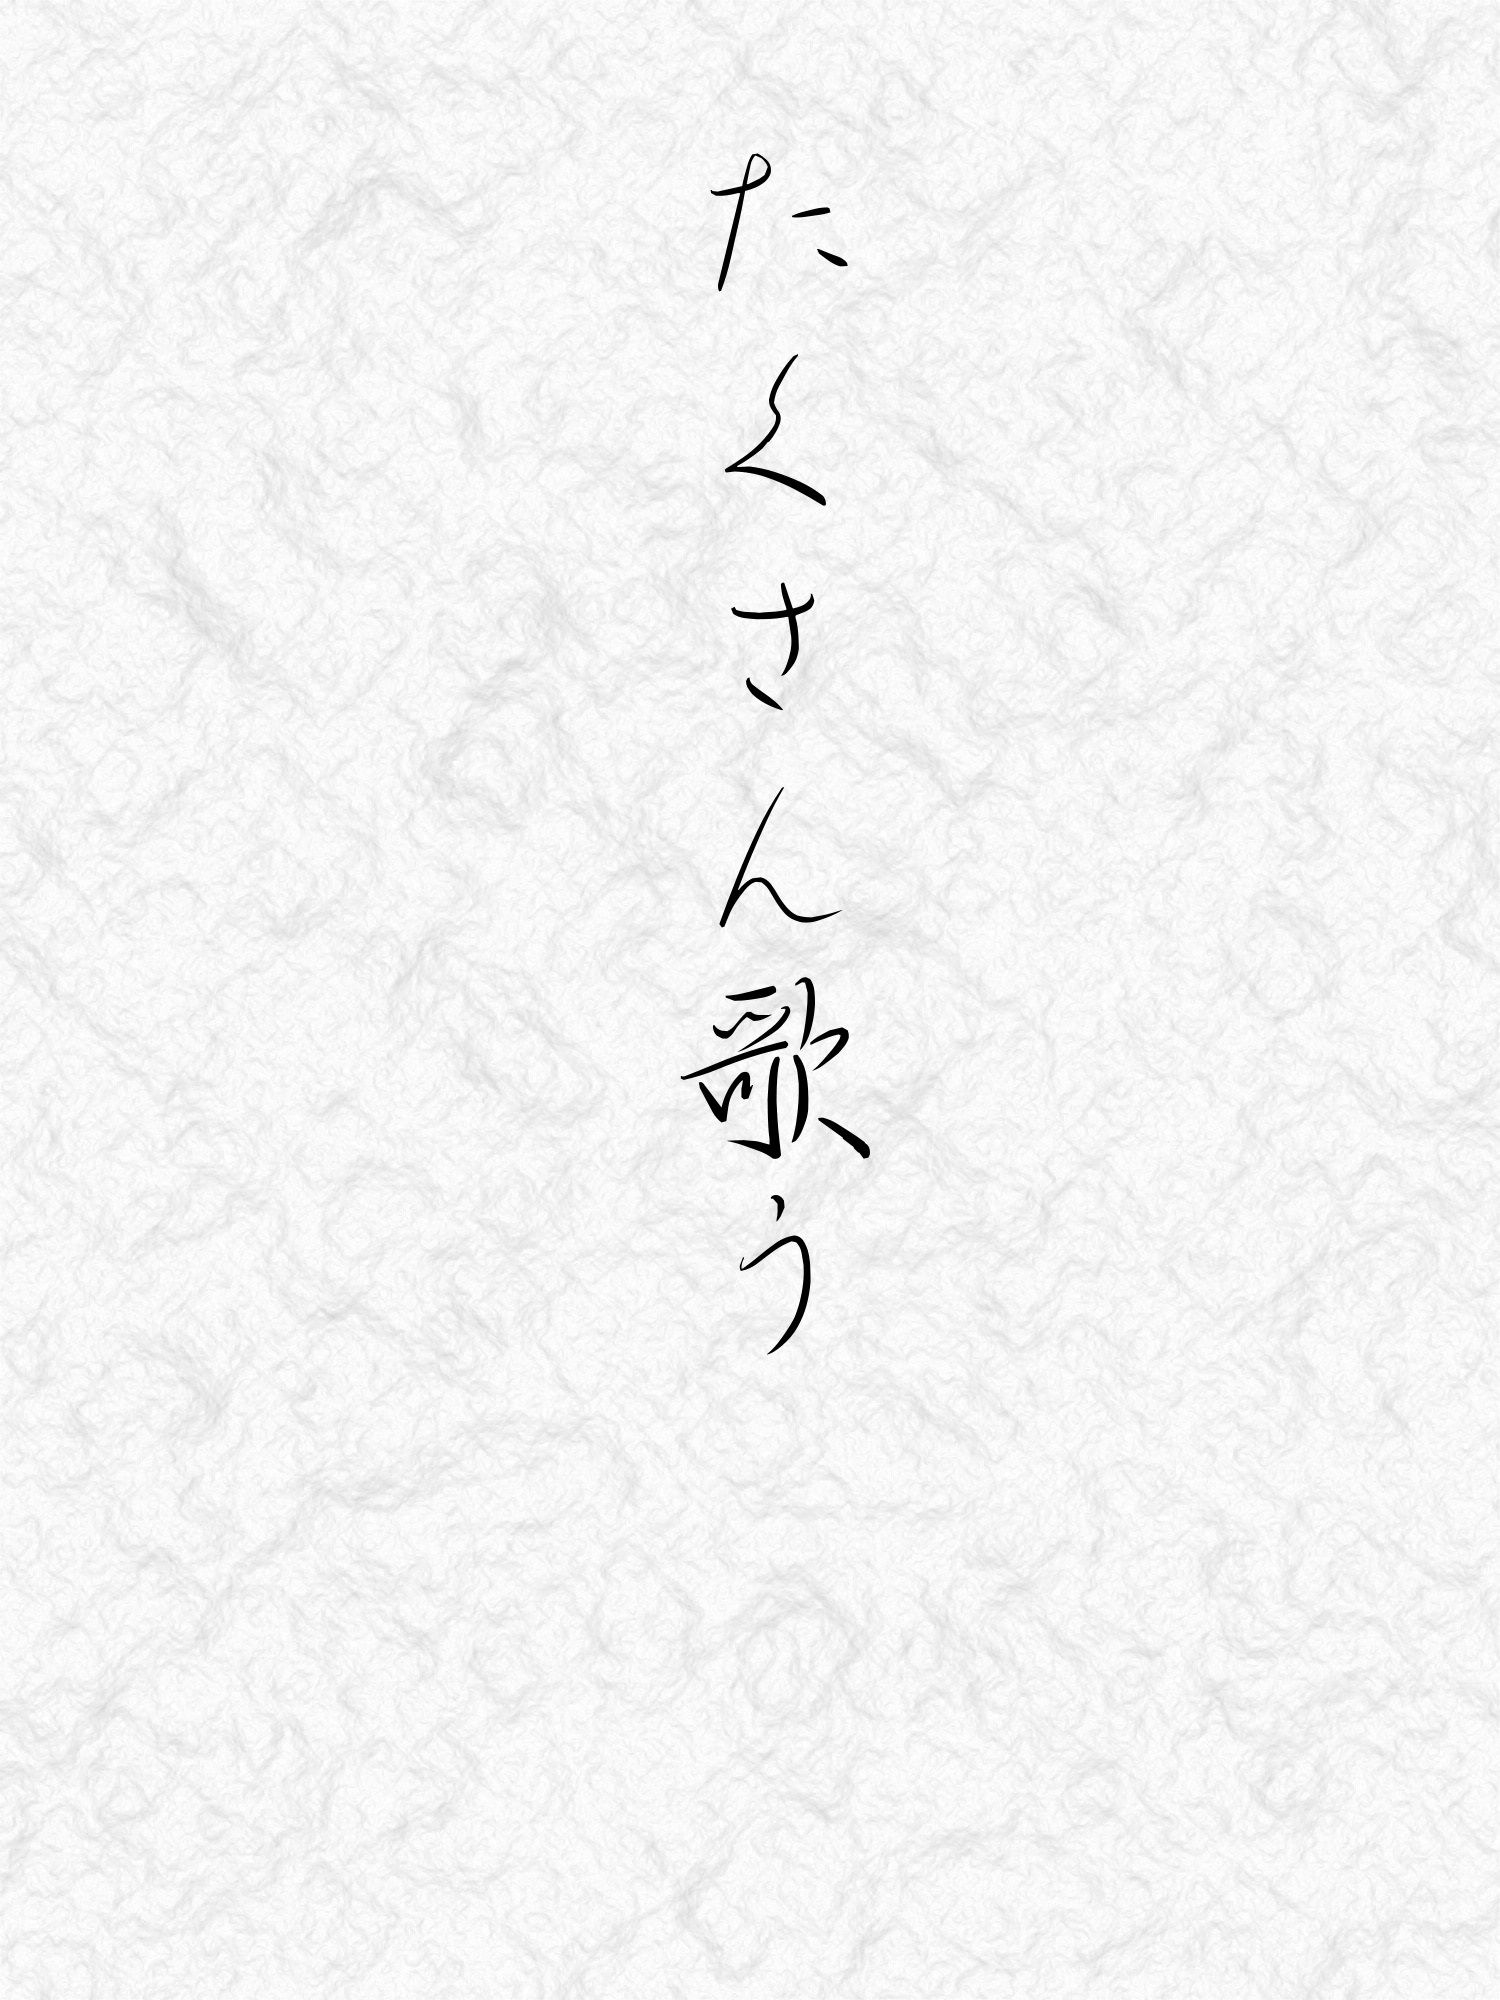 たくさん歌う